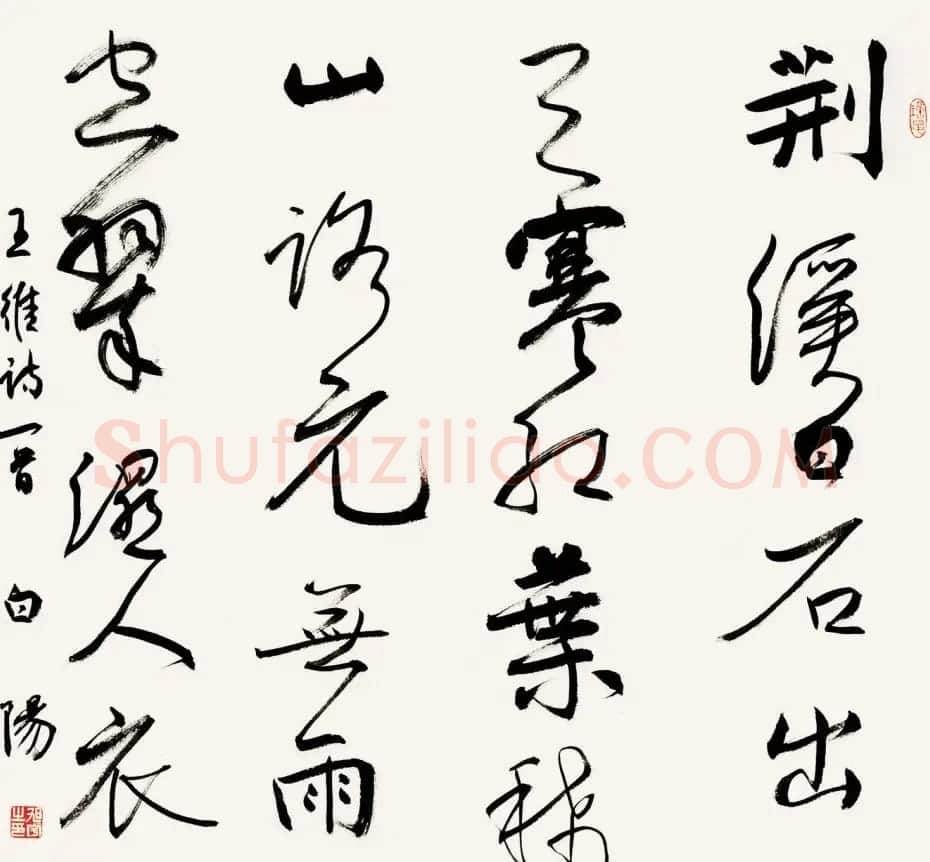 荆溪白石出
天寒红葉稀
山路元無雨
空翠濕人衣
王維诗一首 白陽
Shufaziliao.COM